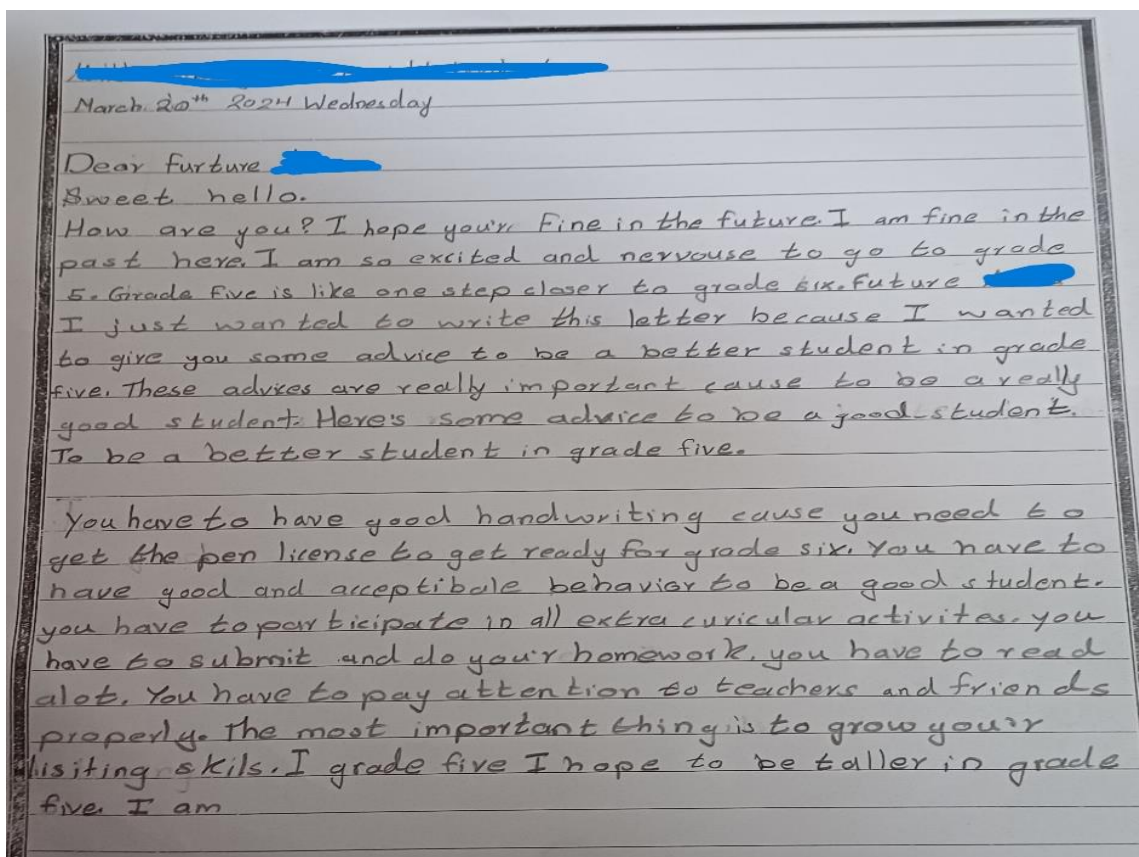 March 20th 2024 Wednesday
Dear furture
Sweet hello.
How are you? I hope you'r Fine in the future. I am fine in the
past here. I am so excited and nervouse to go to grade
5. Girade five is like one step closer to grade six. Future
I just wanted to write this letter because I wanted
to give you some advice to be a better student in grade
five. These advices are really important cause to be a really
good student. Here's some advice to be a good student.
To be a better student in grade five.
You have to have good handwriting cause you need to
get the pen license to get ready for grade six. You have to
have good and acceptibale behavior to be a good student.
you have to participate in all extra curicular activites. you
have to submit and do you'r homework. you have to read
alot. You have to pay attention to teachers and friends
properly. The most important thing is to grow you'r
lisiting skils. I grade five I hope to be taller in grade
five. I am